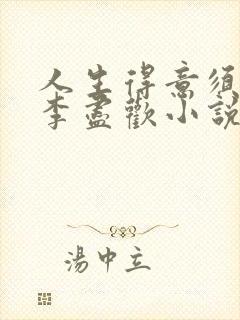 人生得意須
李盡歡小說
湯中立